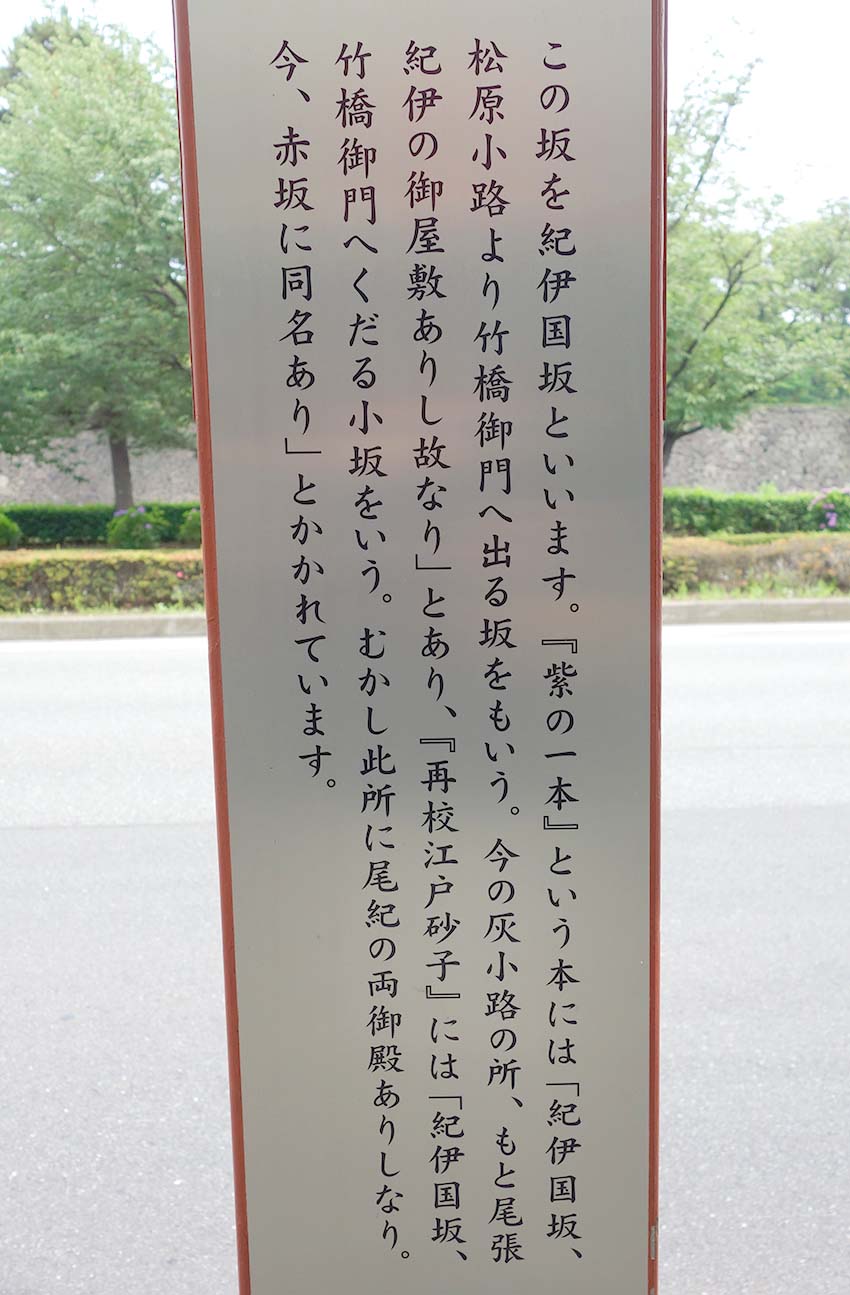 この坂を紀伊国坂といいます。『紫の一本』という本には「紀伊国坂、
松原小路より竹橋御門へ出る坂をもいう。今の灰小路の所、もと尾張
紀伊の御屋敷ありし故なり」とあり、『再校江戸砂子』には「紀伊国坂、
竹橋御門へくだる小坂をいう。むかし此所に尾紀の両御殿ありしなり。
今、赤坂に同名あり」とかかれています。